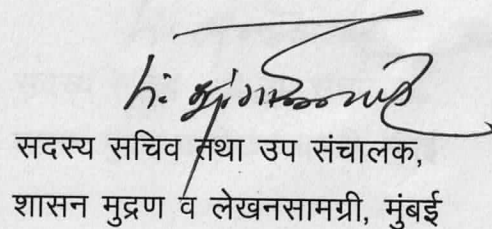 सदस्य सचिव तथा उप संचालक,
शासन मुद्रण व लेखनसामग्री, मुंबई